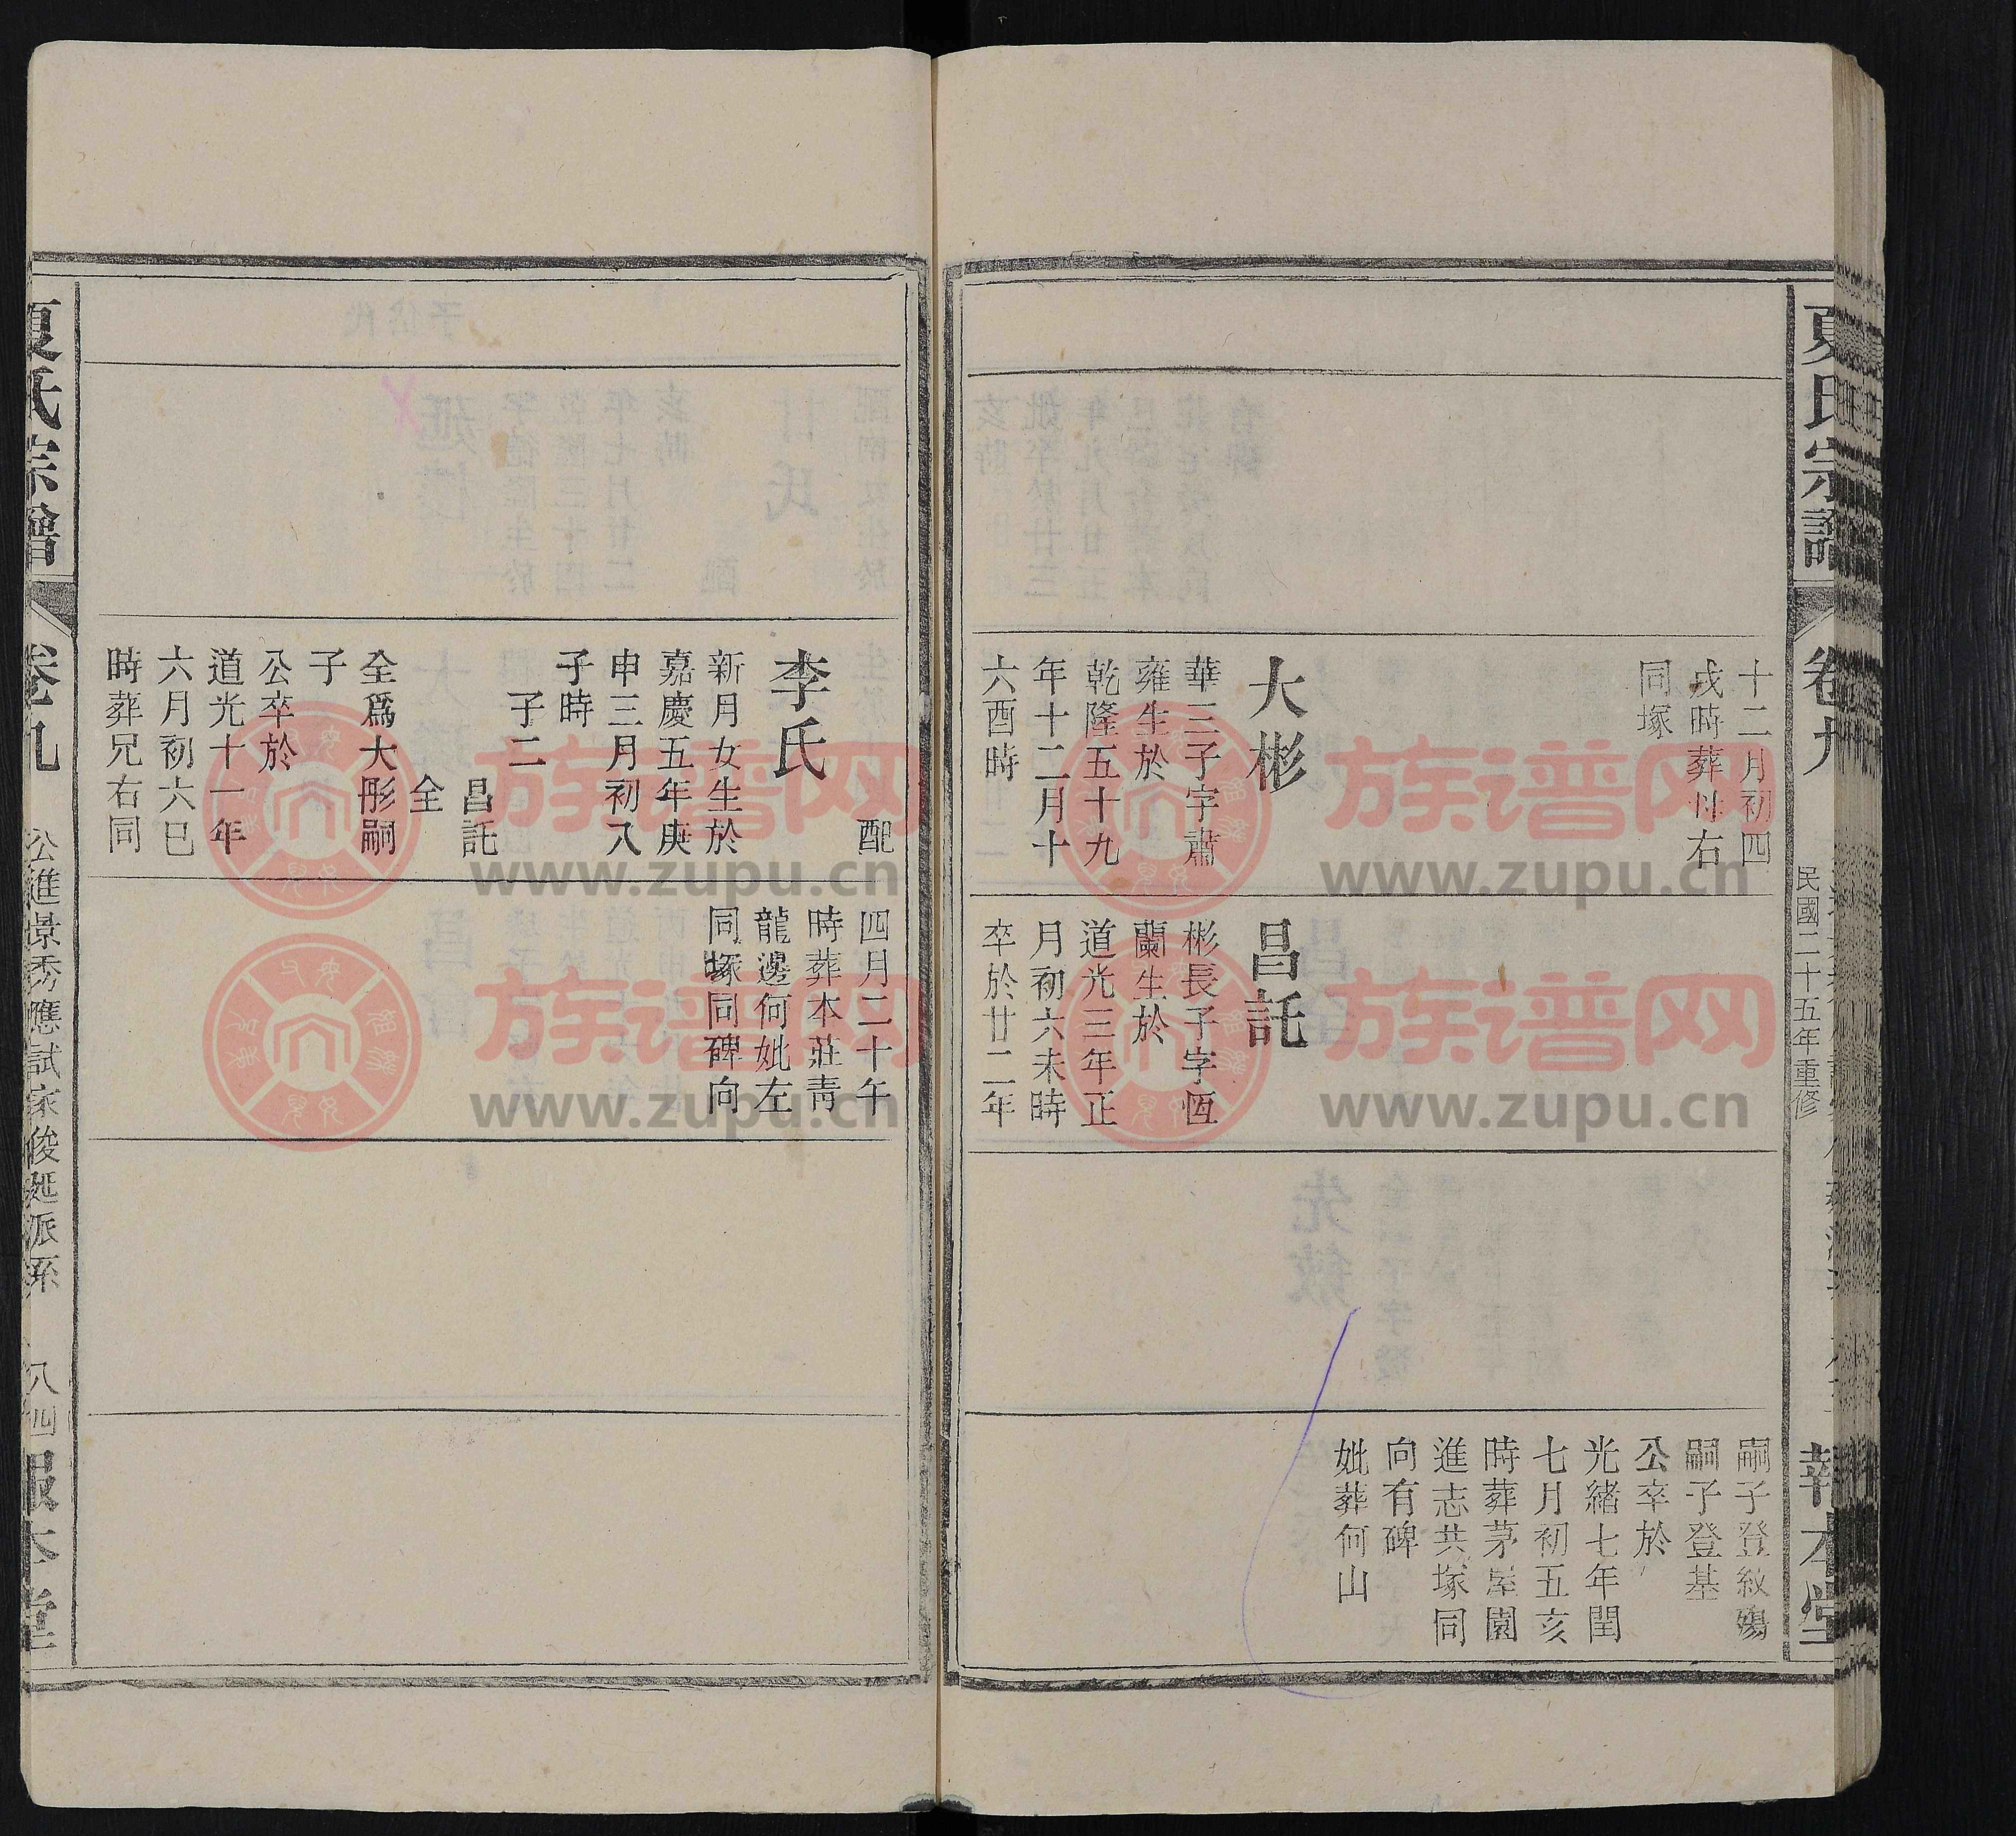 夏氏宗譜
卷九
民國二十五年重修
報本堂
十二月初四
戌時葬母右
同塚
大彬
華三子字肅
雍生於
乾隆五十九
年十二月十
六酉時
昌託
彬長子字恆
蘭生於
道光三年正
月初六未時
卒於廿二年
嗣子登紋殤
嗣子登基
公卒於
光緒七年閏
七月初五亥
時葬茅屋園
進志共塚同
向有碑
妣葬何山
配
李氏
新月女生於
嘉慶五年庚
申三月初八
子時
子二
昌託
全
全爲大彤嗣
子
公卒於
道光十一年
六月初六巳
時葬兄右同
四月二十午
時葬本莊靑
龍邊何妣左
同塚同碑向
夏氏宗譜
卷九
公進景秀應試家俊延派系
八四
報本堂
族谱网
www.zupu.cn
族谱网
www.zupu.cn
族谱网
www.zupu.cn
族谱网
www.zupu.cn